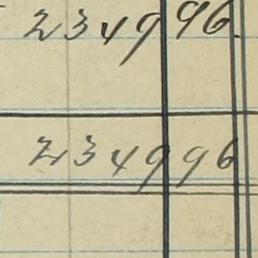 234996.
234996